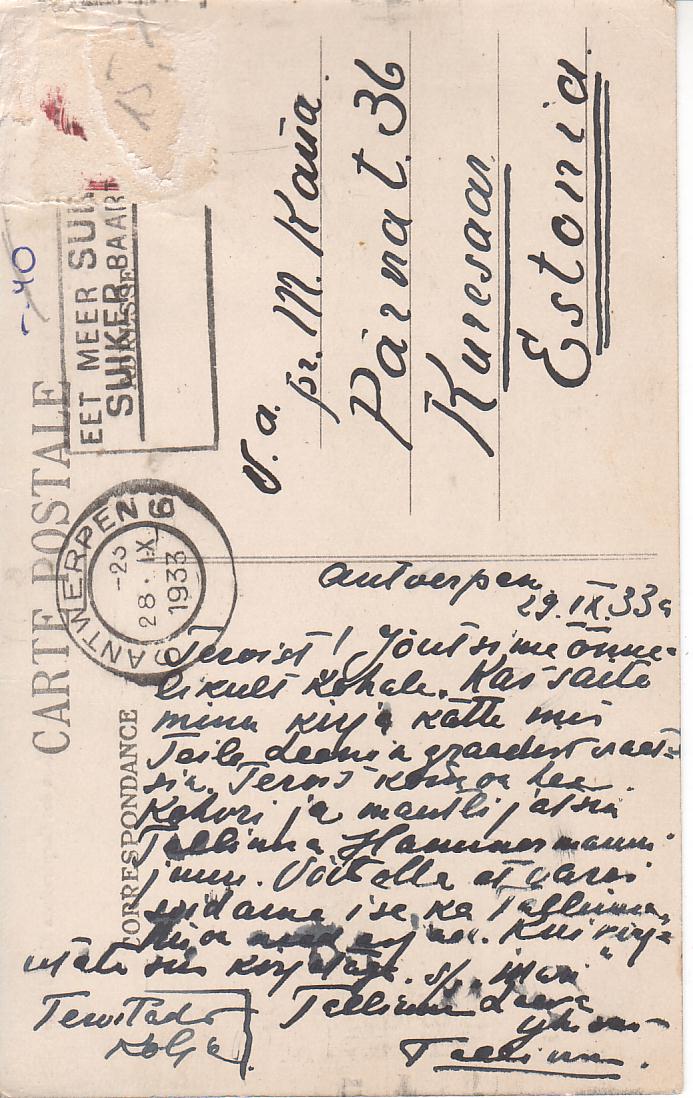 CARTE POSTALE
CORRESPONDANCE
15,-
-.40
EET MEER SUI
SUIKER BAAR
ANTWERPEN 6
-23
28. IX
1933
6
V. a.
pr. M. Kaňa.
Pärna t. 36
Kuresaar
Estonia.
Antverpen
29.IX.33a
Tervist! Jõutsime õnne-
likult kohale. Kas saite
minu kirja kätte mis
Teile Leeningraadist saat-
sin. Tervis korras on hea.
Kohvri ja mantli jätsin
Tallinna Hammermanni
juure. Võib olla et varsi
sõidame ise ka Tallinna,
Kui kirju-
tate siis kirjutage s/s
Tallinna Laeva
ühisus
Tallinn.
Tervitades
Kolja